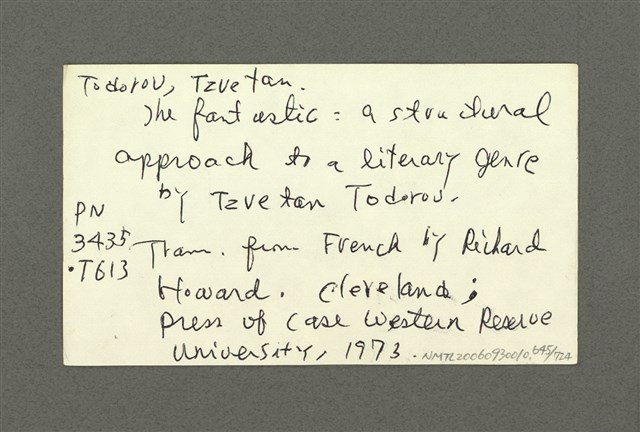 Todorov, Tzvetan.
The fantastic : a structural
approach to a literary genre
by Tzvetan Todorov.
PN
3435
.T613
Tran. from French by Richard
Howard. Cleveland ;
Press of Case Western Reserve
University, 1973.
NMTL20060930010. 645/724